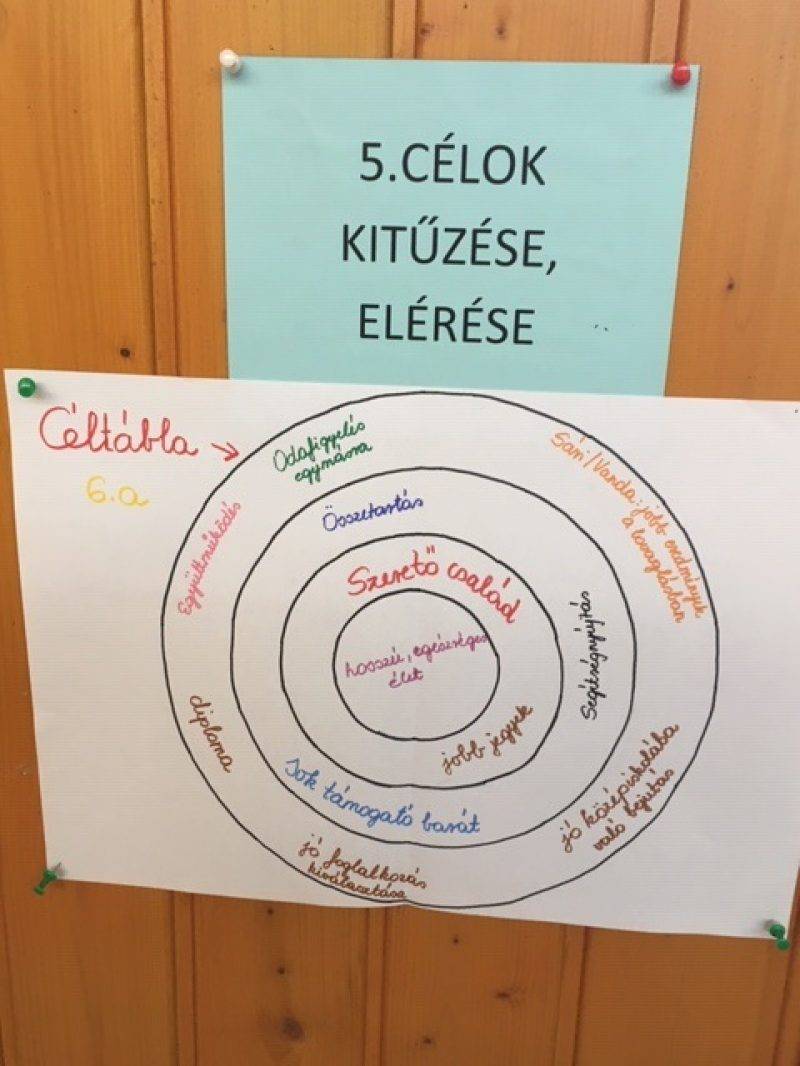 5.CÉLOK
KITŰZÉSE,
ELÉRÉSE
Céltábla →
6.a
Odafigyelés
egymásra
Sári/Vanda: jobb eredmények
a lovaglásban
Együttműködés
Összetartás
Szerető család
Segítségnyújtás
hosszú, egészséges
élet
diploma
jobb jegyek
Sok támogató barát
jó középiskolába
való bejutás
jó foglalkozás
kiválasztása